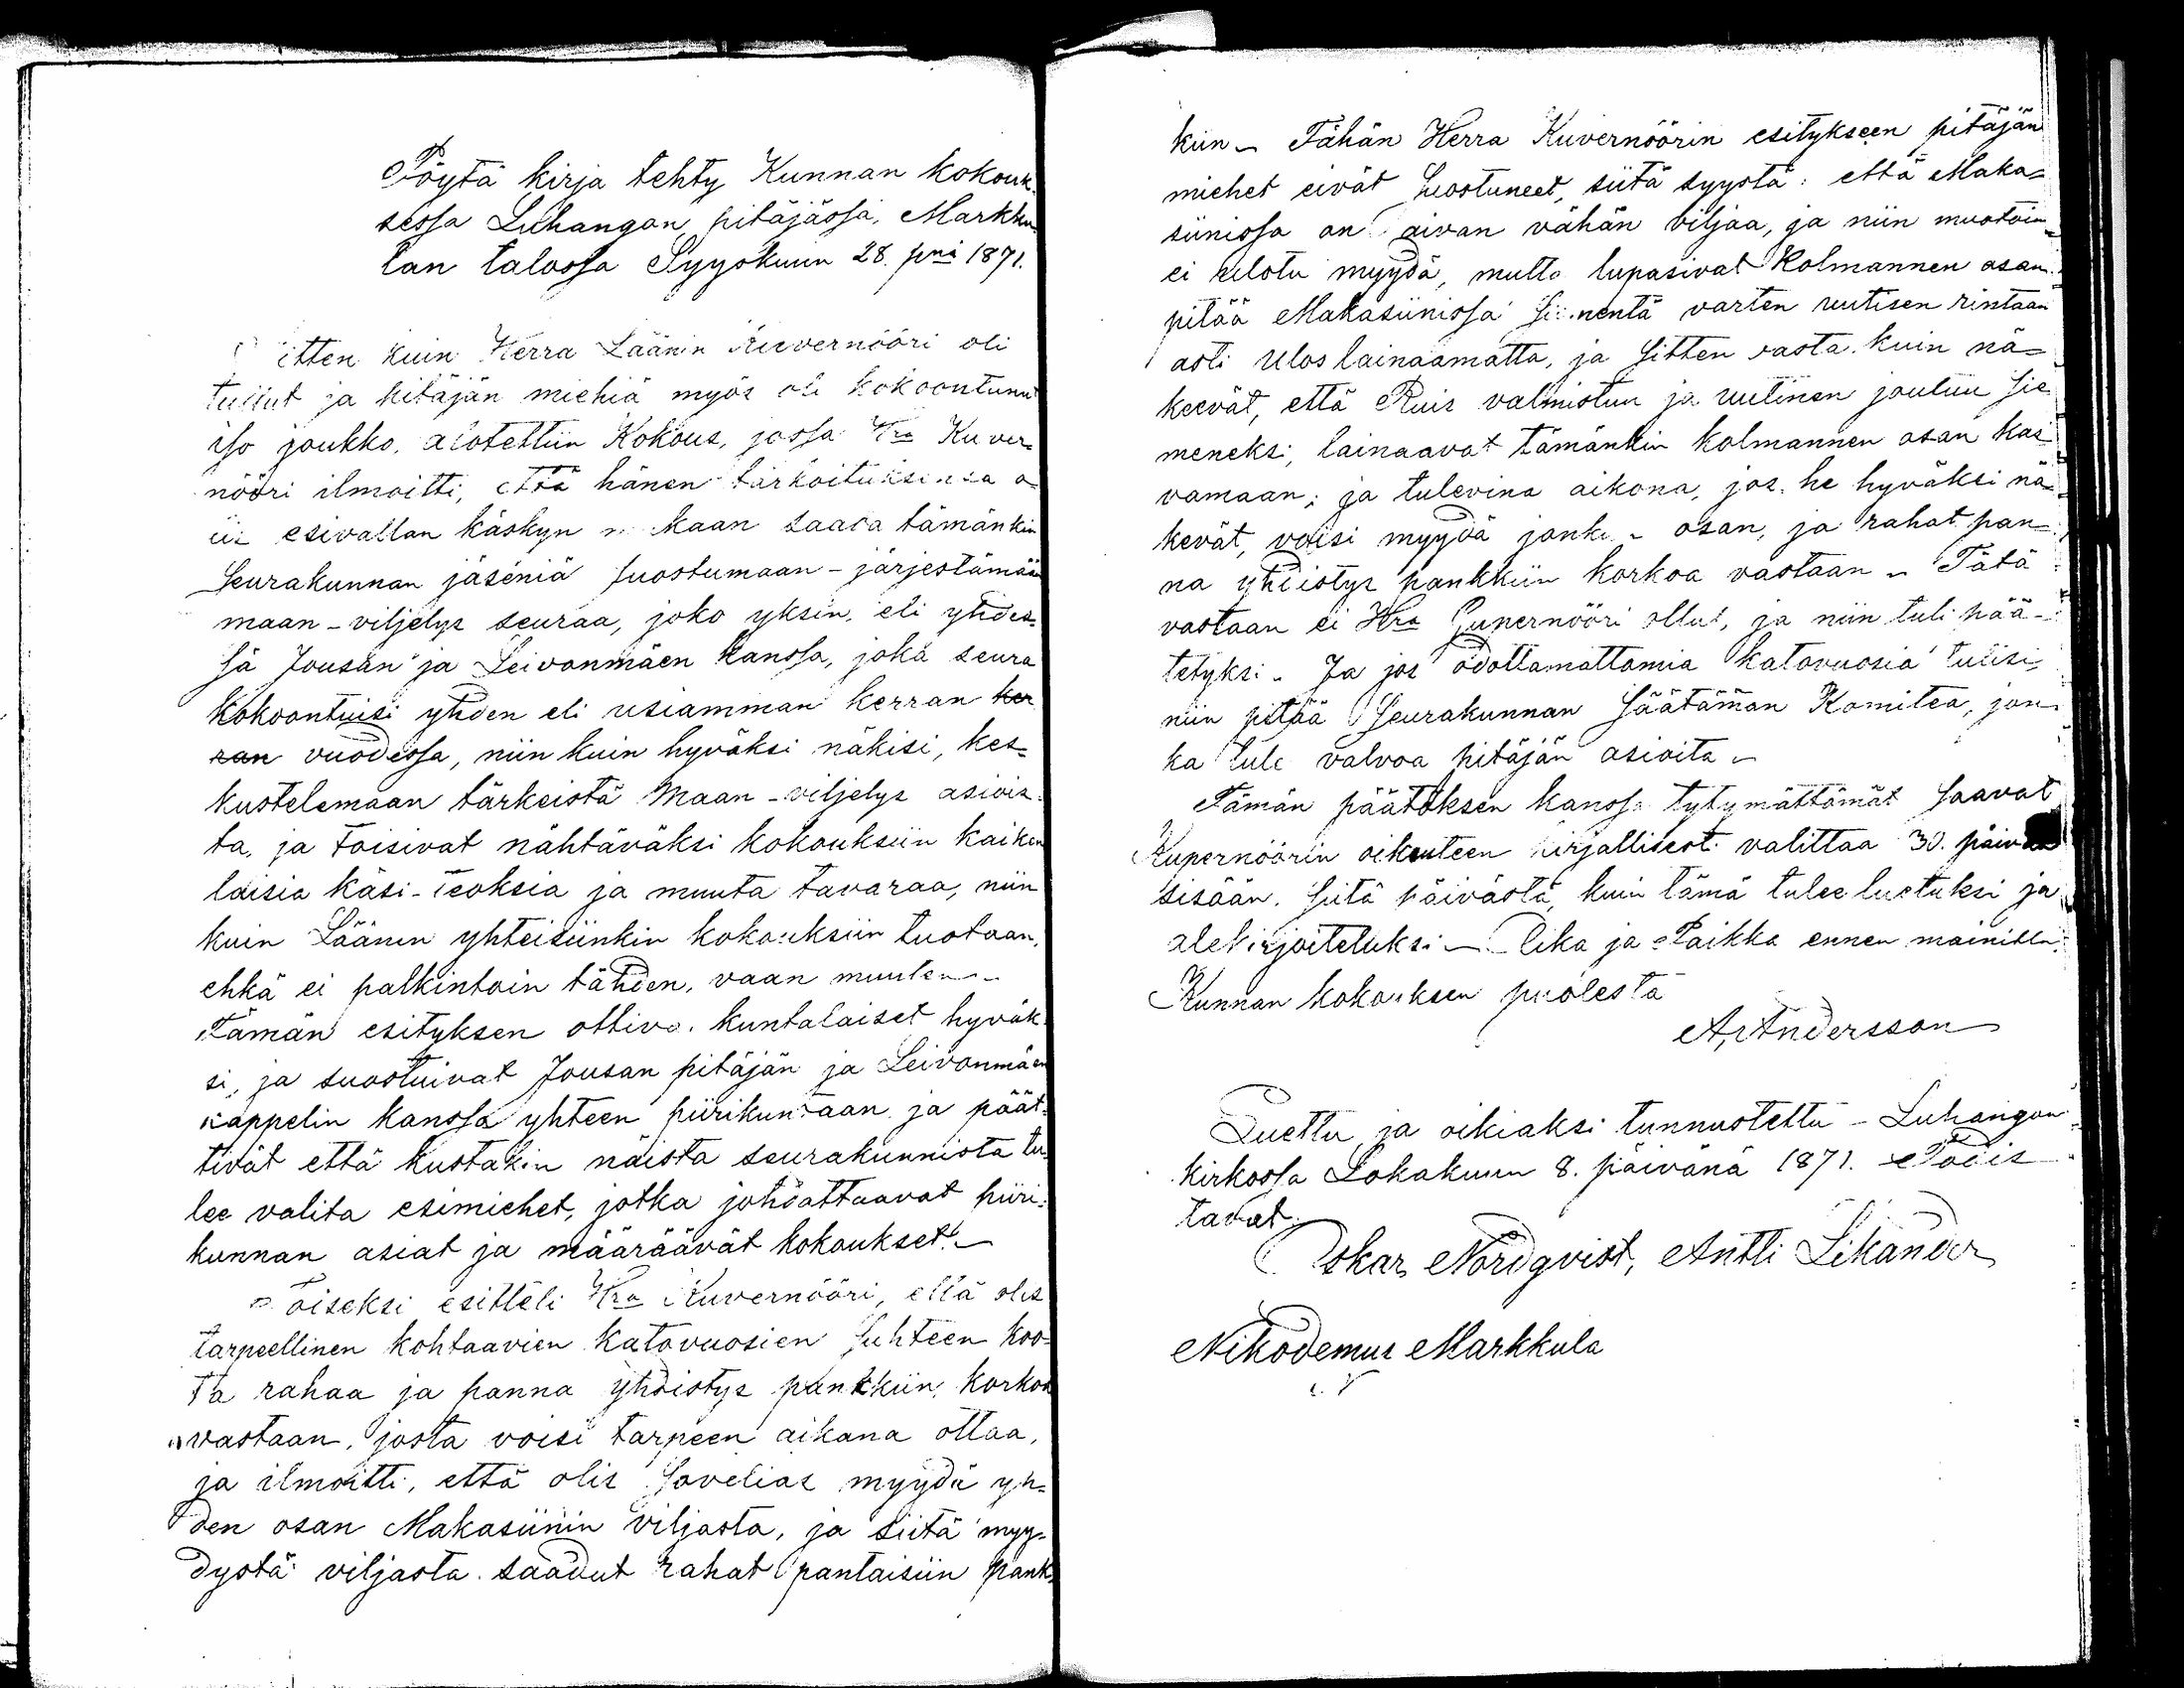 Pöytä kirja tehty Kunnan kokouk-
sessa Luhangan pitäjässä, Markku-
lan talossa Syyskuun 28. pnä 1871.
itten kuin Herra Läänin Kuvernööri oli
tullut ja pitäjän miehiä myös oli kokoontunut
iso joukko, alotettiin Kokous, jossa Hra Kuver-
nööri ilmoitti, että hänen tarkoituksensa o-
lis esivallan käskyn mukaan saada tämänkin
Seurakunnan jäseniä suostumaan - järjestämään
maan-viljelys seuraa, joko yksin, eli yhdes-
sä Jousan ja Leivonmäen kanssa, joka seura
kokoontuisi yhden eli usiamman kerran ker
ran vuodessa, niin kuin hyväksi näkisi, kes-
kustelemaan tärkeistä Maan-viljelys asiois-
ta, ja toisivat nähtäväksi kokouksiin kaiken
laisia käsi-teoksia ja muuta tavaraa, niin
kuin Läänin yhteisiinkin kokouksiin tuotaan,
ehkä ei palkintoin tähden, vaan muuten -
Tämän esityksen ottivat kuntalaiset hyväk-
si, ja suostuivat Jousan pitäjän ja Leivonmäen
kappelin kanssa yhteen piirikuntaan ja päät-
tivät että kustakin näistä seurakunnista tu-
lee valita esimiehet, jotka johdattaavat piiri-
kunnan asiat ja määräävät kokoukset. -
Toiseksi esitteli Hra Kuvernööri, että olis
tarpeellinen kohtaavien katovuosien suhteen koo-
ta rahaa ja panna yhdistys pankkiin, korkoa
vastaan, josta voisi tarpeen aikana ottaa,
ja ilmoitti, että olis sovelias myydä yh-
den osan Makasiinin viljasta, ja siitä myy-
dystä viljasta saadut rahat pantaisiin pank-
kiin - Tähän Herra Kuvernöörin esitykseen pitäjän
miehet eivät suostuneet, siitä syystä: että Maka-
siinissa on aivan vähän viljaa, ja niin muotoin
ei ulotu myydä, mutta lupasivat Kolmannen osan
pitää Makasiinissa siementä varten uutisen rintaan
asti ulos lainaamatta, ja sitten vasta kuin nä-
keevät, että Ruis valmistuu ja uutinen joutuu sie
meneksi, lainaavat tämänkin kolmannen osan kas
vamaan; ja tulevina aikona, jos he hyväksi nä-
kevät, voisi myydä jonkun osan, ja rahat pan-
na yhdistys pankkiin korkoa vastaan - Tätä
vastaan ei Hra Gupernööri ollut, ja niin tuli pää-
tetyksi. Ja jos odottamattomia katovuosia tulisi,
niin pitää Seurakunnan säätämän Komitea, jon-
ka tule valvoa pitäjän asioita -
Tämän päätöksen kanssa tytymättömät saavat
Kupernöörin oikeuteen kirjallisesti valittaa 30. päivän
sisään. siitä päivästä, kuin tämä tulee luetuksi ja
alekirjoitetuksi - Aika ja Paikka ennen mainittu.
Kunnan kokouksen puolesta
A, Andersson
Luettu ja oikiaksi tunnustettu - Luhangan
kirkossa Lokakuun 8. päivänä 1871. Todis
tavat.
Oskar Nordqvist, Antti Likander
Nikodemus Markkula